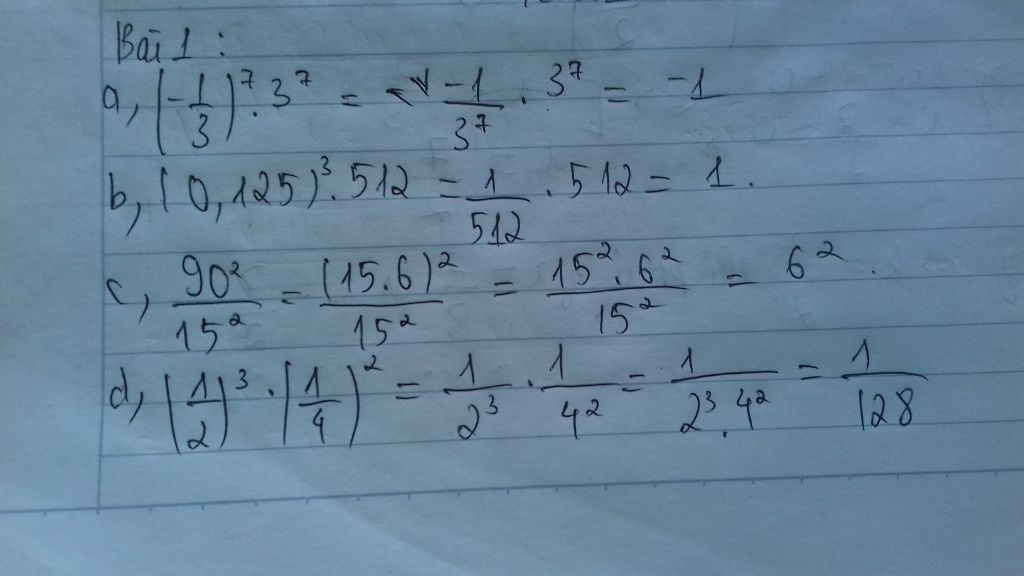 Bài 1 :
a, (-1/3)⁷ . 3⁷ = -1/3⁷ . 3⁷ = -1
b, (0,125)³ . 512 = 1/512 . 512 = 1.
c, 90²/15² = (15.6)²/15² = 15².6²/15² = 6².
d, (1/2)³ . (1/4)² = 1/2³ . 1/4² = 1/2³.4² = 1/128